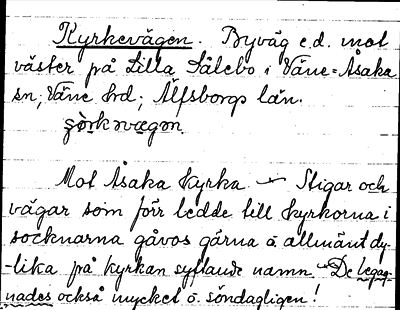 Kyrkevägen. Byväg e.d. mot
väster på Lilla Sälebo i Väne-Åsaka
sn; Väne hd; Älfsborgs län.
Mot Åsaka kyrka — Stigar och
vägar som förr ledde till kyrkorna i
socknarna gåvos gärna å allmänt dy-
-lika på kyrkan syftande namn. De legag-
nades också mycket å söndagligen!